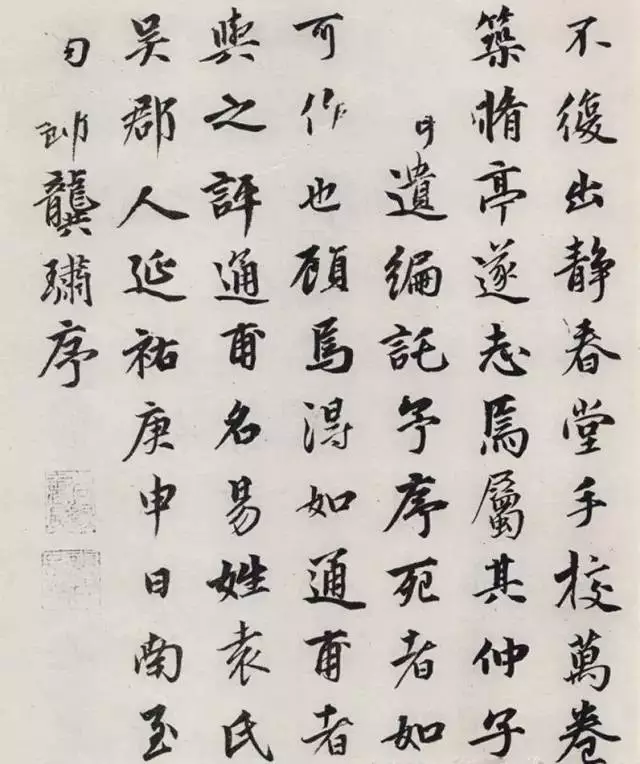 不復出静春堂手校萬卷
築惰亭遂志焉屬其仲子
遺編託予序死者如
可作也顧焉得如通甫者
與之評通甫名易姓袁氏
吴郡人延祐庚申日南至
龔璛序